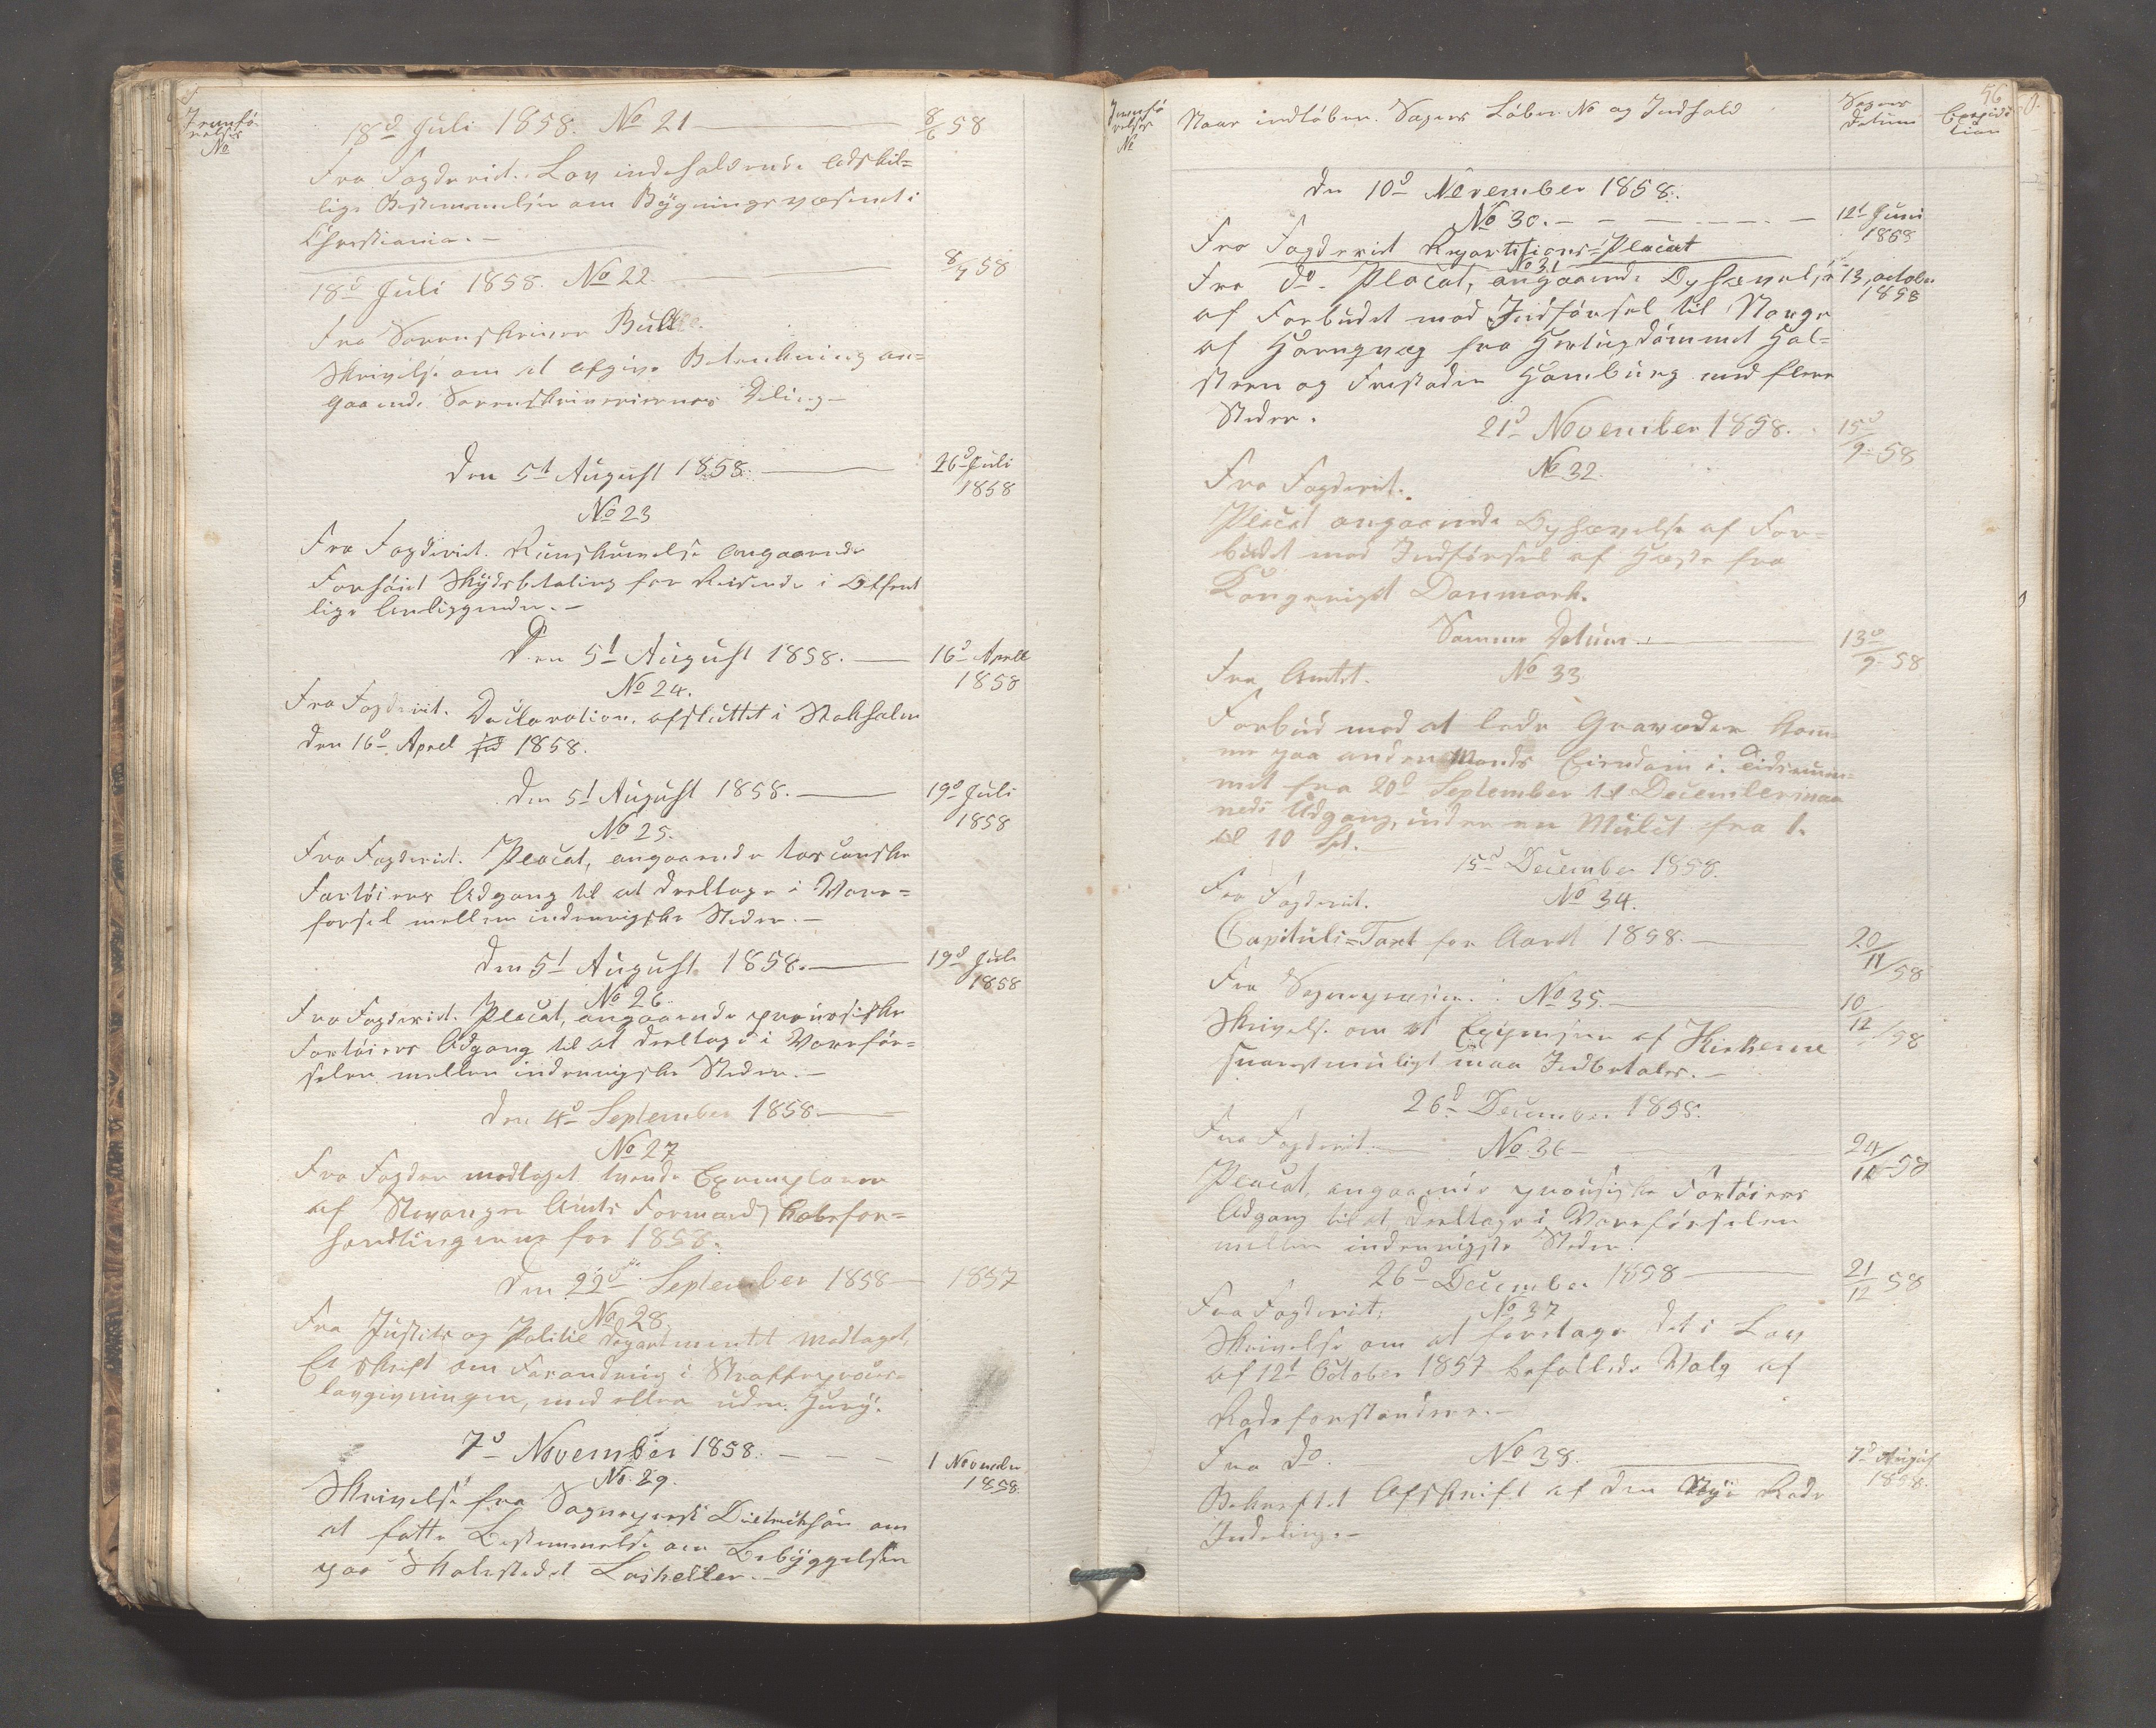 Jevnfö-
relses
No
18d Juli 1858. No 21 — 8/6 58
Fra Fogderiet. Lov indeholdende adskil=
lige Bestemmelser om Bygningsvæsenet i
Christiania.-
18d Juli 1858. No 22 — 8/7 58
Fra Sorenskriver Bull
Skrivelse om at afgive Betænkning an=
gaaende Sorenskriveriernes Deling-
Den 5t August 1858. — 26d Juli
1858
No 23
Fra Fogderiet. Kundgjørelse angaaende
Forhöiet Skydsbetaling for Reisende i Offent
lige Anliggender.-
Den 5t August 1858. — 16d April
1858
No 24.
Fra Fogderiet. Declaration, afsluttet i Stokholm
den 16d April 1858.
Den 5t August 1858. — 19d Juli
1858
No 25.
Fra Fogderiet. Placat, angaaende toscanske
Fartöiers Adgang til at deeltage i Vare=
forsel mellem indenrigske Steder.-
Den 5t August 1858. — 19d Juli
1858
No 26.
Fra Fogderiet. Placat, angaaende preussiske
Fartöiers Adgang til at deeltage i Vareför=
selen mellem indenrigske Steder.-
Den 4d September 1858. —
No 27
Fra Fogden modtaget tvende Exemplarer
af Stavanger Amts Formandskabsfor=
handlingerne for 1858.
Den 22d September 1858 — 1857
No 28.
Fra Justits og Politie Departementet modtaget
Et Skrift om Forandring i Straffeproces-
lovgivningen, med eller uden Jury.
7d November 1858. - - - 1 November
1858.
No. 29.
Skrivelse fra Sognepræst Dietrichson om
at fatte Bestemmelse om Bebyggelsen
paa Skolestedet Laskeller.-
Jevnfö
relses
No
Naar indlöben. Sagens Löbe No og Indhold
Sagens
Datum
56
Expedi
tion
Den 10d November 1858.
No 30. - - - - 12t Juni
1858
Fra Fogderiet Repartitions=Placat
No 31
Fra do- Placat, angaaende Ophævelse 13 october
1858
af Forbudet mod Indförsel til Norge
af Hornqvæg fra Hertugdömmet Hol=
steen og Fristaden Hamburg med flere
Steder.
21d November 1858. 15d
9 - 58
No 32.
Fra Fogderiet.
Placat angaaende Ophævelse af For=
budet mod Indförsel af Heste fra
Kongeriget Danmark.
Samme Datum. — 13d
9 - 58
Fra Amtet. No 33
Forbud mod at lade Gravøder kom=
me paa anden Mands Eiendom i Tidsrum=
met fra 20d September til Decembermaa
neds Udgang, under en Mulct fra 1.
til 10 Spd.
15d December 1858.
Fra Fogderiet. No 34.
Capituls=Taxt for Aaret 1858.- 20/11/58
Fra Sognepræsten. No 35. — 10/12/58
Skrivelse om at af Kirkerne
snarestmuligt maa Indbetales.-
26d December 1858.
Fra Fogderiet. No. 36 - 24/11 58
Placat, angaaende preussiske Fartöiers
Adgang til at deeltage i Vareförselen
mellem indenrigske Steder.
26d December 1858 — 21/12 58
Fra Fogderiet. No 37
Skrivelse om at foretage det i Lov
af 12t October 1857 befallede Valg af
Rodeforstandere.-
Fra do. No 38. — 7d August
1858.
Bekræftet Afskrift af den Nye Rode
Inddeling.-